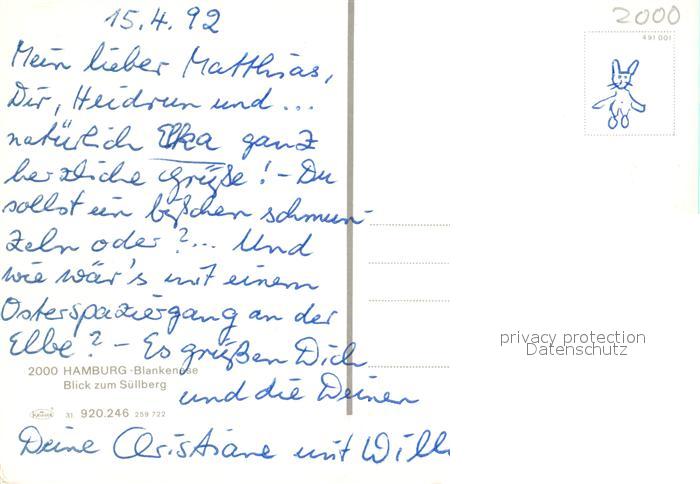 15.4.92
2000
491 001
Mein lieber Matthias,
Dir, Heidrun und...
natürlich Elka ganz
herzliche Grüße! - Du
sollst ein bißchen schmun-
zeln oder?... Und
wie wär's mit einem
Osterspaziergang an der
Elbe? - Es grüßen Dich
und die Deinen
Deine Christiane mit Will
2000 HAMBURG-Blankenese
Blick zum Süllberg
Krüger 31 920.246 259 722
privacy protection
Datenschutz